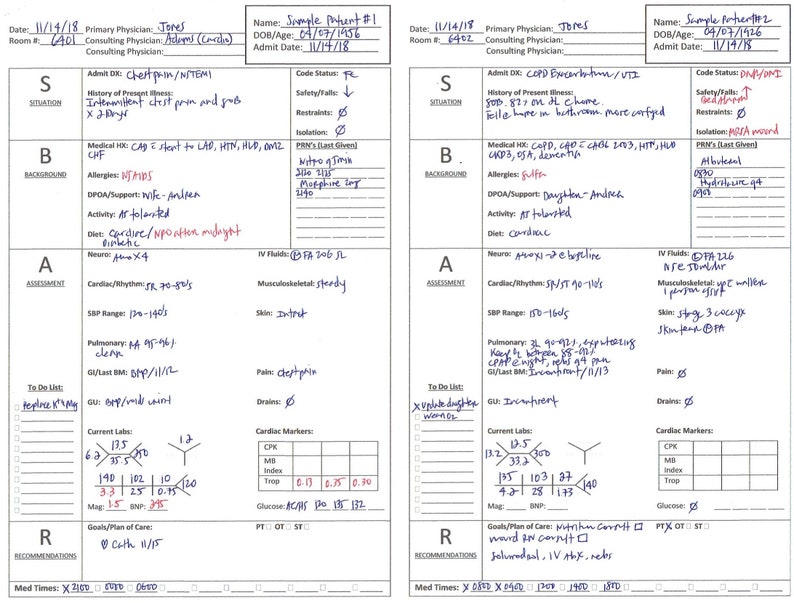 Date: 11/14/18 Primary Physician: Jones
Room #: 6401 Consulting Physician: Adams (Cardio)
Consulting Physician:
Name: Sample Patient #1
DOB/Age: 04/07/1956
Admit Date: 11/14/18
S
SITUATION
Admit DX: Chest pain/NSTEMI
History of Present Illness:
Intermittent chest pain and SOB
x 2 days
Code Status: FC
Safety/Falls: ↓
Restraints: Ø
Isolation: Ø
B
BACKGROUND
Medical HX: CAD c̄ stent to LAD, HTN, HLD, DM2
CHF
Allergies: NSAIDS
DPOA/Support: Wife-Andrea
Activity: AS tolerated
Diet: Cardiac/NPO after midnight
Diabetic
PRN's (Last Given)
Nitro q5min
2120 2125
Morphine 2mg
2140
A
ASSESSMENT
Neuro: A+Ox4
Cardiac/Rhythm: SR 70-80's
SBP Range: 120-140's
Pulmonary: RA 95-96%
clear
GI/Last BM: BRP/11/12
GU: BRP/void urinal
IV Fluids: FA 20G SL
Musculoskeletal: steady
Skin: Intact
Pain: Chest pain
Drains: Ø
To Do List:
Replace K+ Mg
Current Labs:
6.2 13.5 250
35.5
1.2
140 102 10 120
3.3 25 0.75
Mag: 1.5 BNP: 245
Cardiac Markers:
CPK
MB
Index
Trop 0.13 0.35 0.30
Glucose: AC/HS 120 135 132
R
RECOMMENDATIONS
Goals/Plan of Care:
♡ Cath 11/15
PT □ OT □ ST □
Med Times: X 2100 □ 0000 □ 0600
Date: 11/14/18 Primary Physician: Jones
Room #: 6402 Consulting Physician:
Consulting Physician:
Name: Sample Patient #2
DOB/Age: 04/07/1926
Admit Date: 11/14/18
S
SITUATION
Admit DX: COPD Exacerbation/UTI
History of Present Illness:
SOB. 82% on 2L @ home.
Fell @ home in bathroom more confused
Code Status: DNR/DNI
Safety/Falls: ↑
Bed Alarm
Restraints: Ø
Isolation: MRSA wound
B
BACKGROUND
Medical HX: COPD, CAD c̄ CABG 2003, HTN, HLD
CKD3, OSA, dementia
Allergies: Sulfa
DPOA/Support: Daughter-Andrea
Activity: AS tolerated
Diet: Cardiac
PRN's (Last Given)
Albuterol
0830
0900
A
ASSESSMENT
Neuro: A+Ox1-2 @ baseline
Cardiac/Rhythm: SR/ST 90-110's
SBP Range: 150-160's
Pulmonary: 3L 90-92%, exp wheezing
Keep O2 between 88-92%
CPAP @ night, nebs q4 PRN
GI/Last BM: Incontinent/11/13
GU: Incontinent
IV Fluids: FA 22G
NS @ 50ml/hr
Musculoskeletal: up c̄ walker
1 person assist
Skin: stage 3 coccyx
skin tear FA
Pain: Ø
Drains: Ø
To Do List:
X update daughter
wean O2
Current Labs:
13.2 12.5 300
33.2
135 103 27 140
4.2 28 1.73
Mag: BNP:
Cardiac Markers:
CPK
MB
Index
Trop
Glucose: Ø
R
RECOMMENDATIONS
Goals/Plan of Care: Nutrition Consult □
wound RN consult □
Solumedrol, IV Abx, nebs
PT X OT □ ST □
Med Times: X 0800 X 0900 □ 1200 □ 1400 □ 1800